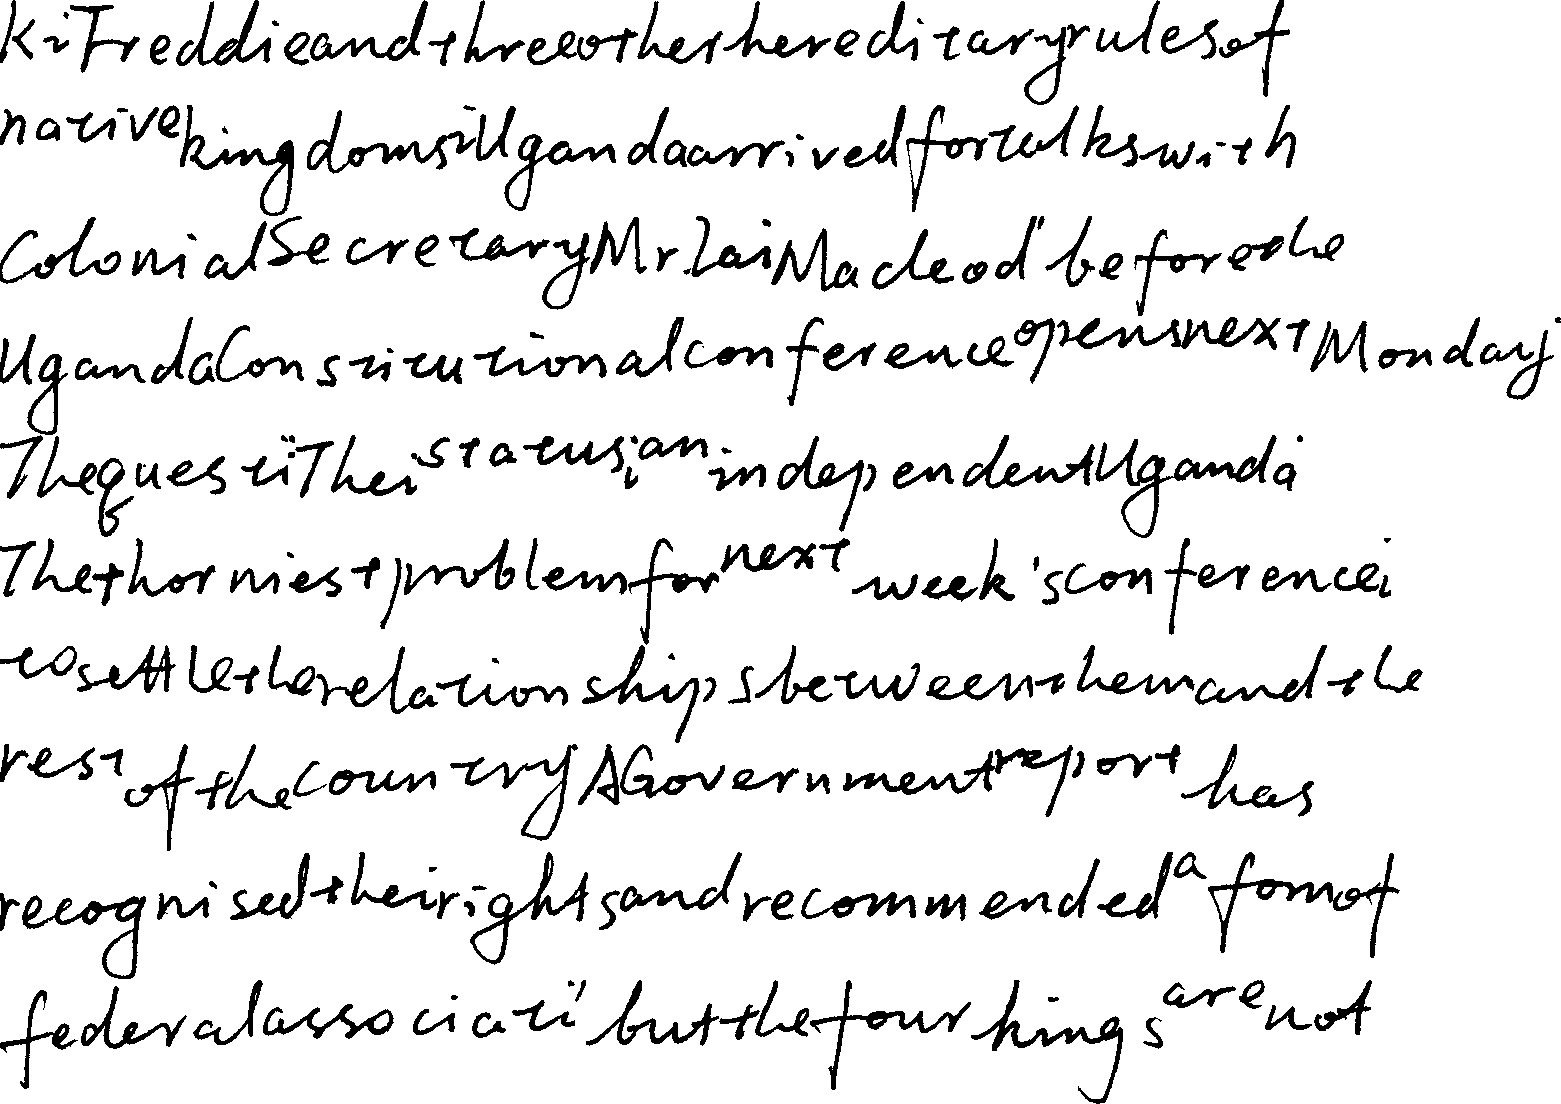 Ki Freddie and three other hereditary rules of
native kingdoms i Uganda arrived for talks with
Colonial Secretary Mr. Iai Macleod before the
Uganda Constitutional conference opens next Monday
The questi The i status i an independent Uganda
The thorniest problem for next week's conference i
to settle the relationships between them and the
rest of the country A Government report has
recognised their rights and recommended a form of
federal associati but the four kings are not